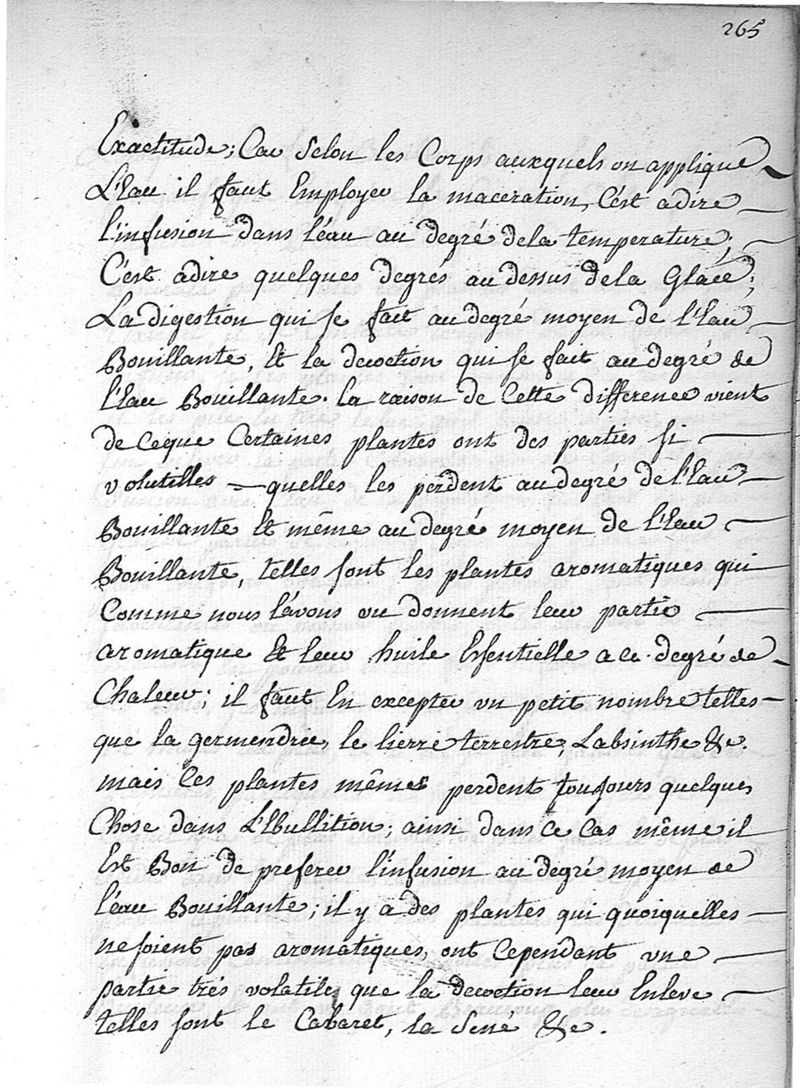 265
Exactitude; Car Selon les Corps auxquels on applique
L'Eau il faut Employer la maceration, C'est adire
l'infusion dans l'éau au degré dela temperature,
C'est adire quelques degrés au dessus dela Glace;
La digestion qui se fait au degré moyen de l'Eau
Bouillante, Et la decoction qui se fait au degré de
l'Eau Bouillante. la raison de Cette difference vient
de ceque Certaines plantes ont des parties si
volutilles quelles les perdent au degré de l'Eau
Bouillante Et même au degré moyen de l'Eau
Bouillante, telles sont les plantes aromatiques qui
Comme nous l'avons vu donnent leur partie
aromatique Et leur huile Essentielle a ce degré de
Chaleur; il faut En excepter un petit nombre telles
que la germendrée, le lierre terrestre, L'absinthe &c.
mais Ces plantes mêmes perdent toujours quelques
Chose dans L'Ebullition; ainsi dans ce Cas même il
Est Bon de preferer l'infusion au degré moyen de
l'éau Bouillante; il y a des plantes qui quoiquelles
ne soient pas aromatiques, ont Cependant une
partie trés volatile que la decoction leur Enleve
telles sont le Cabaret, la Sené &c.